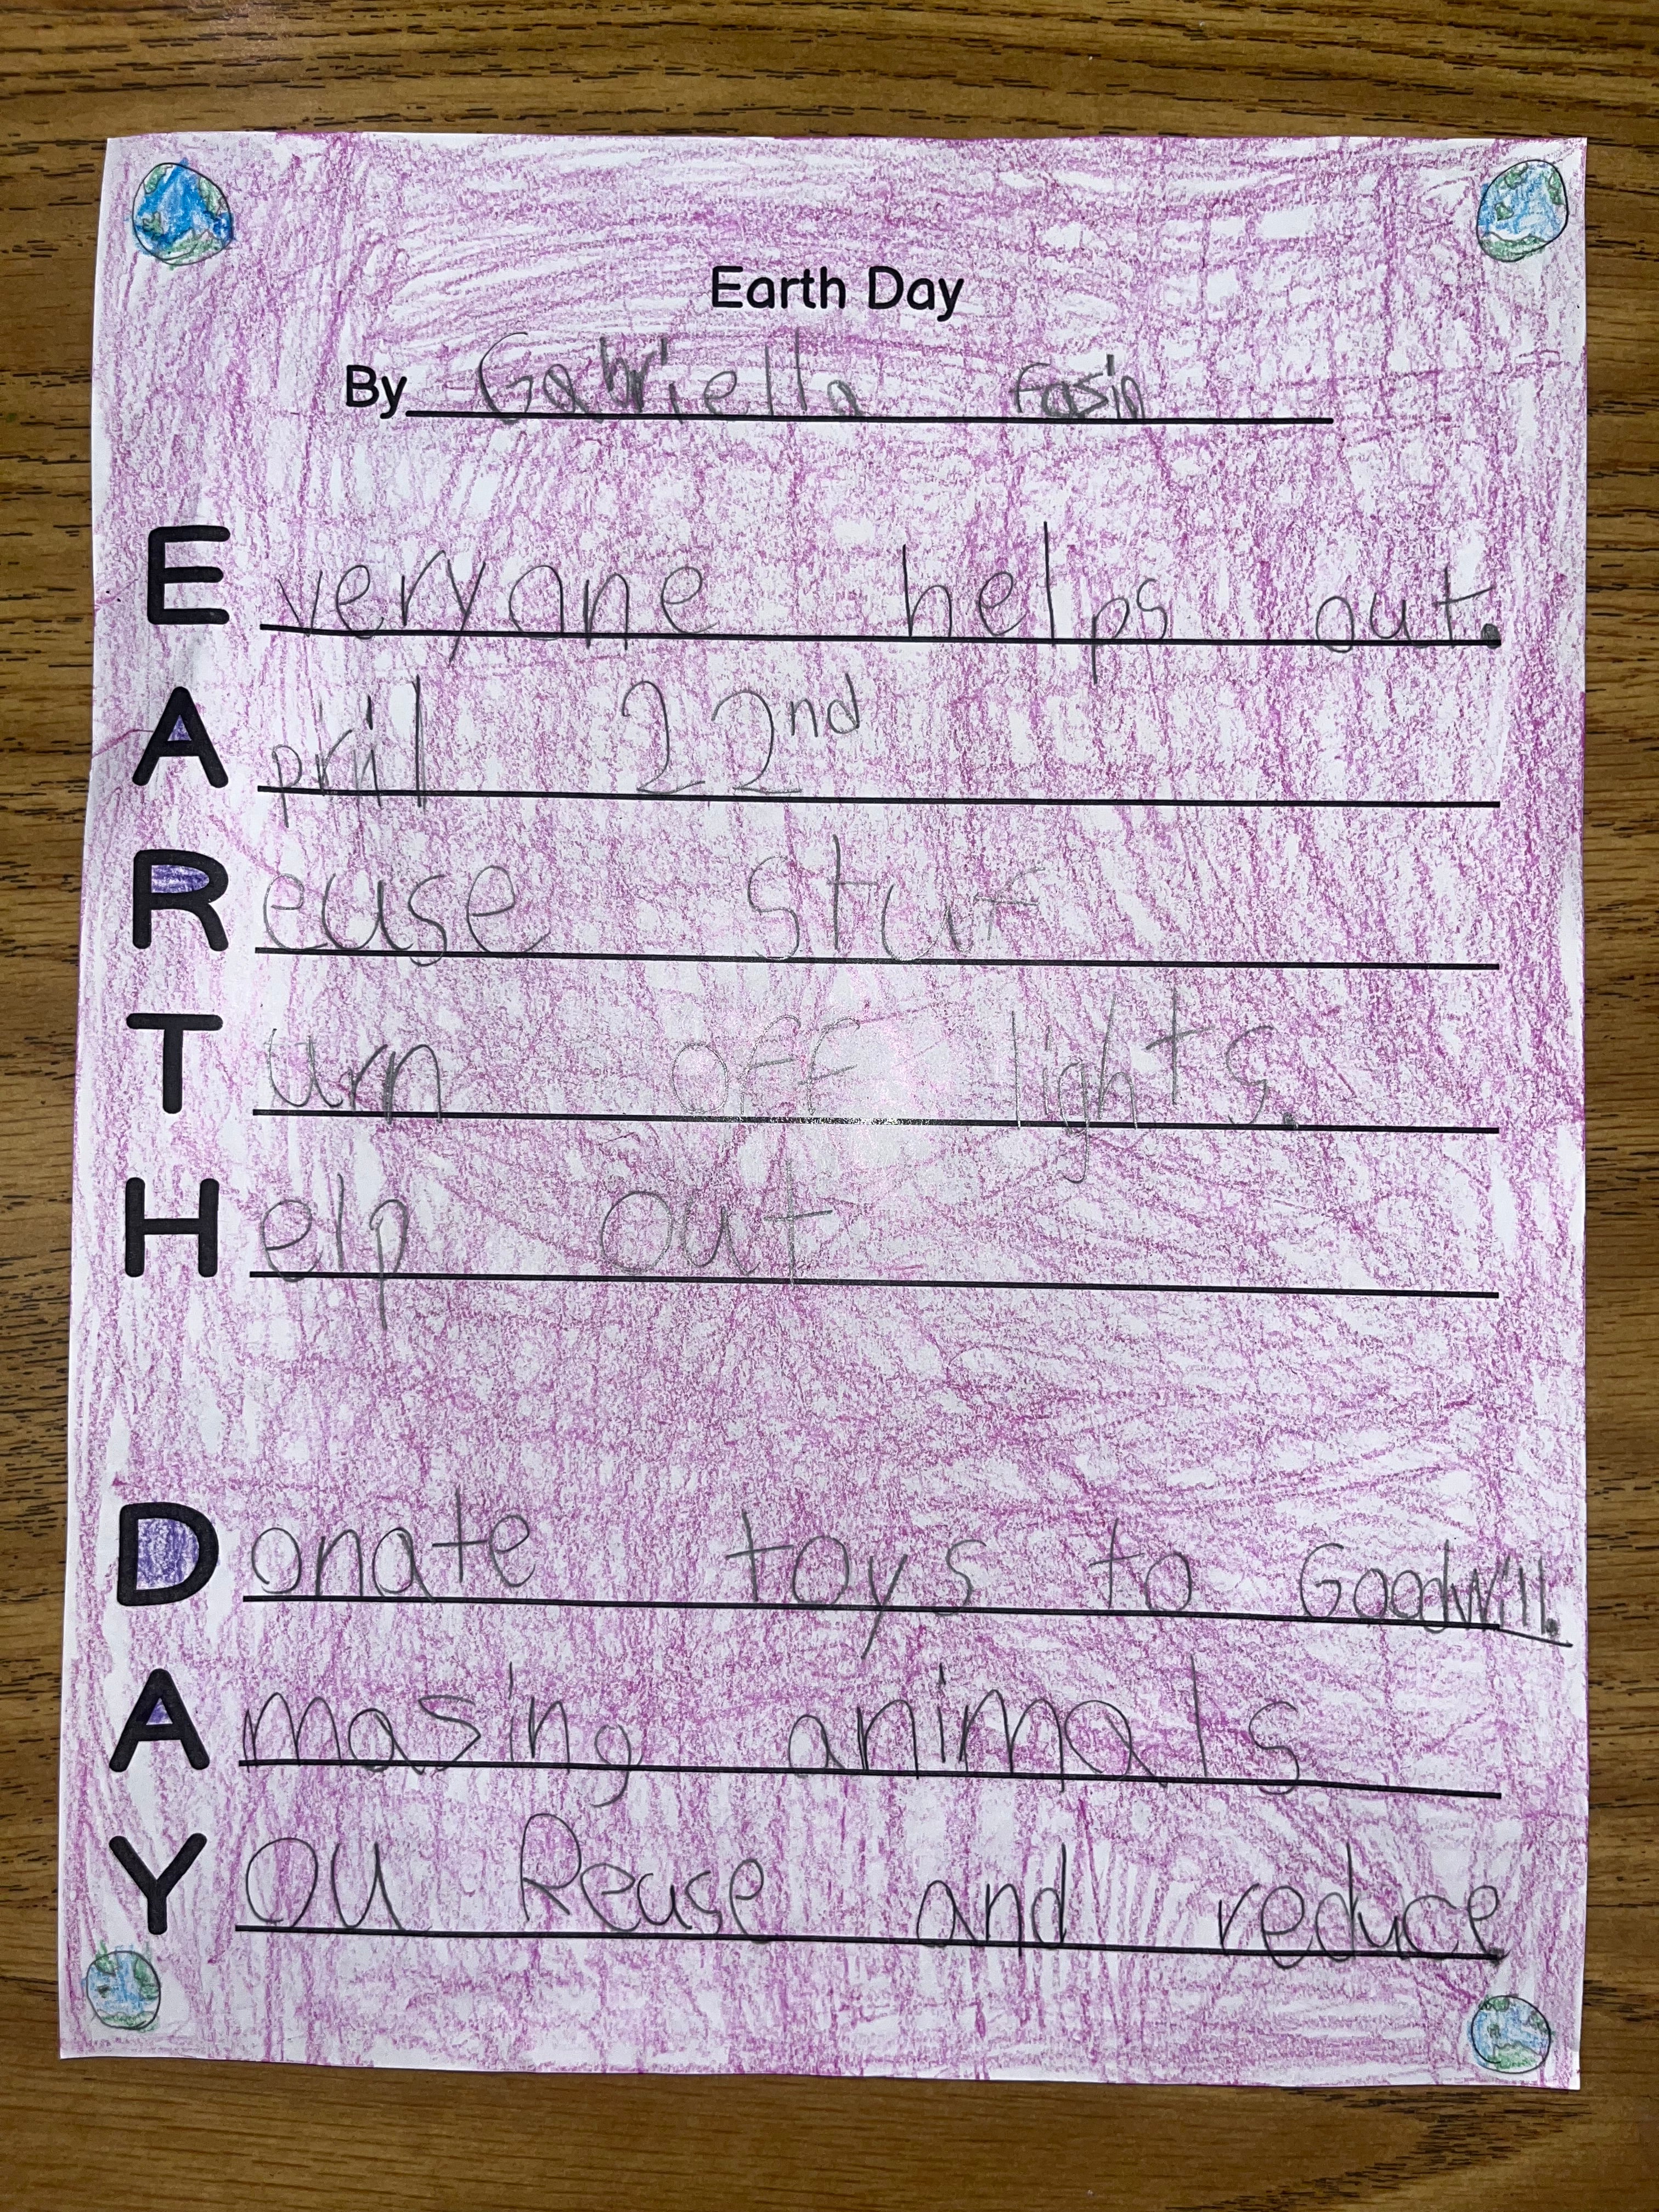 Earth Day
By Gabriella Fasig
Everyone helps out.
April 22nd
Reuse stuf
Turn off lights.
Help out
Donate toys to Goodwill.
Amasing animals
You Reuse and reduce